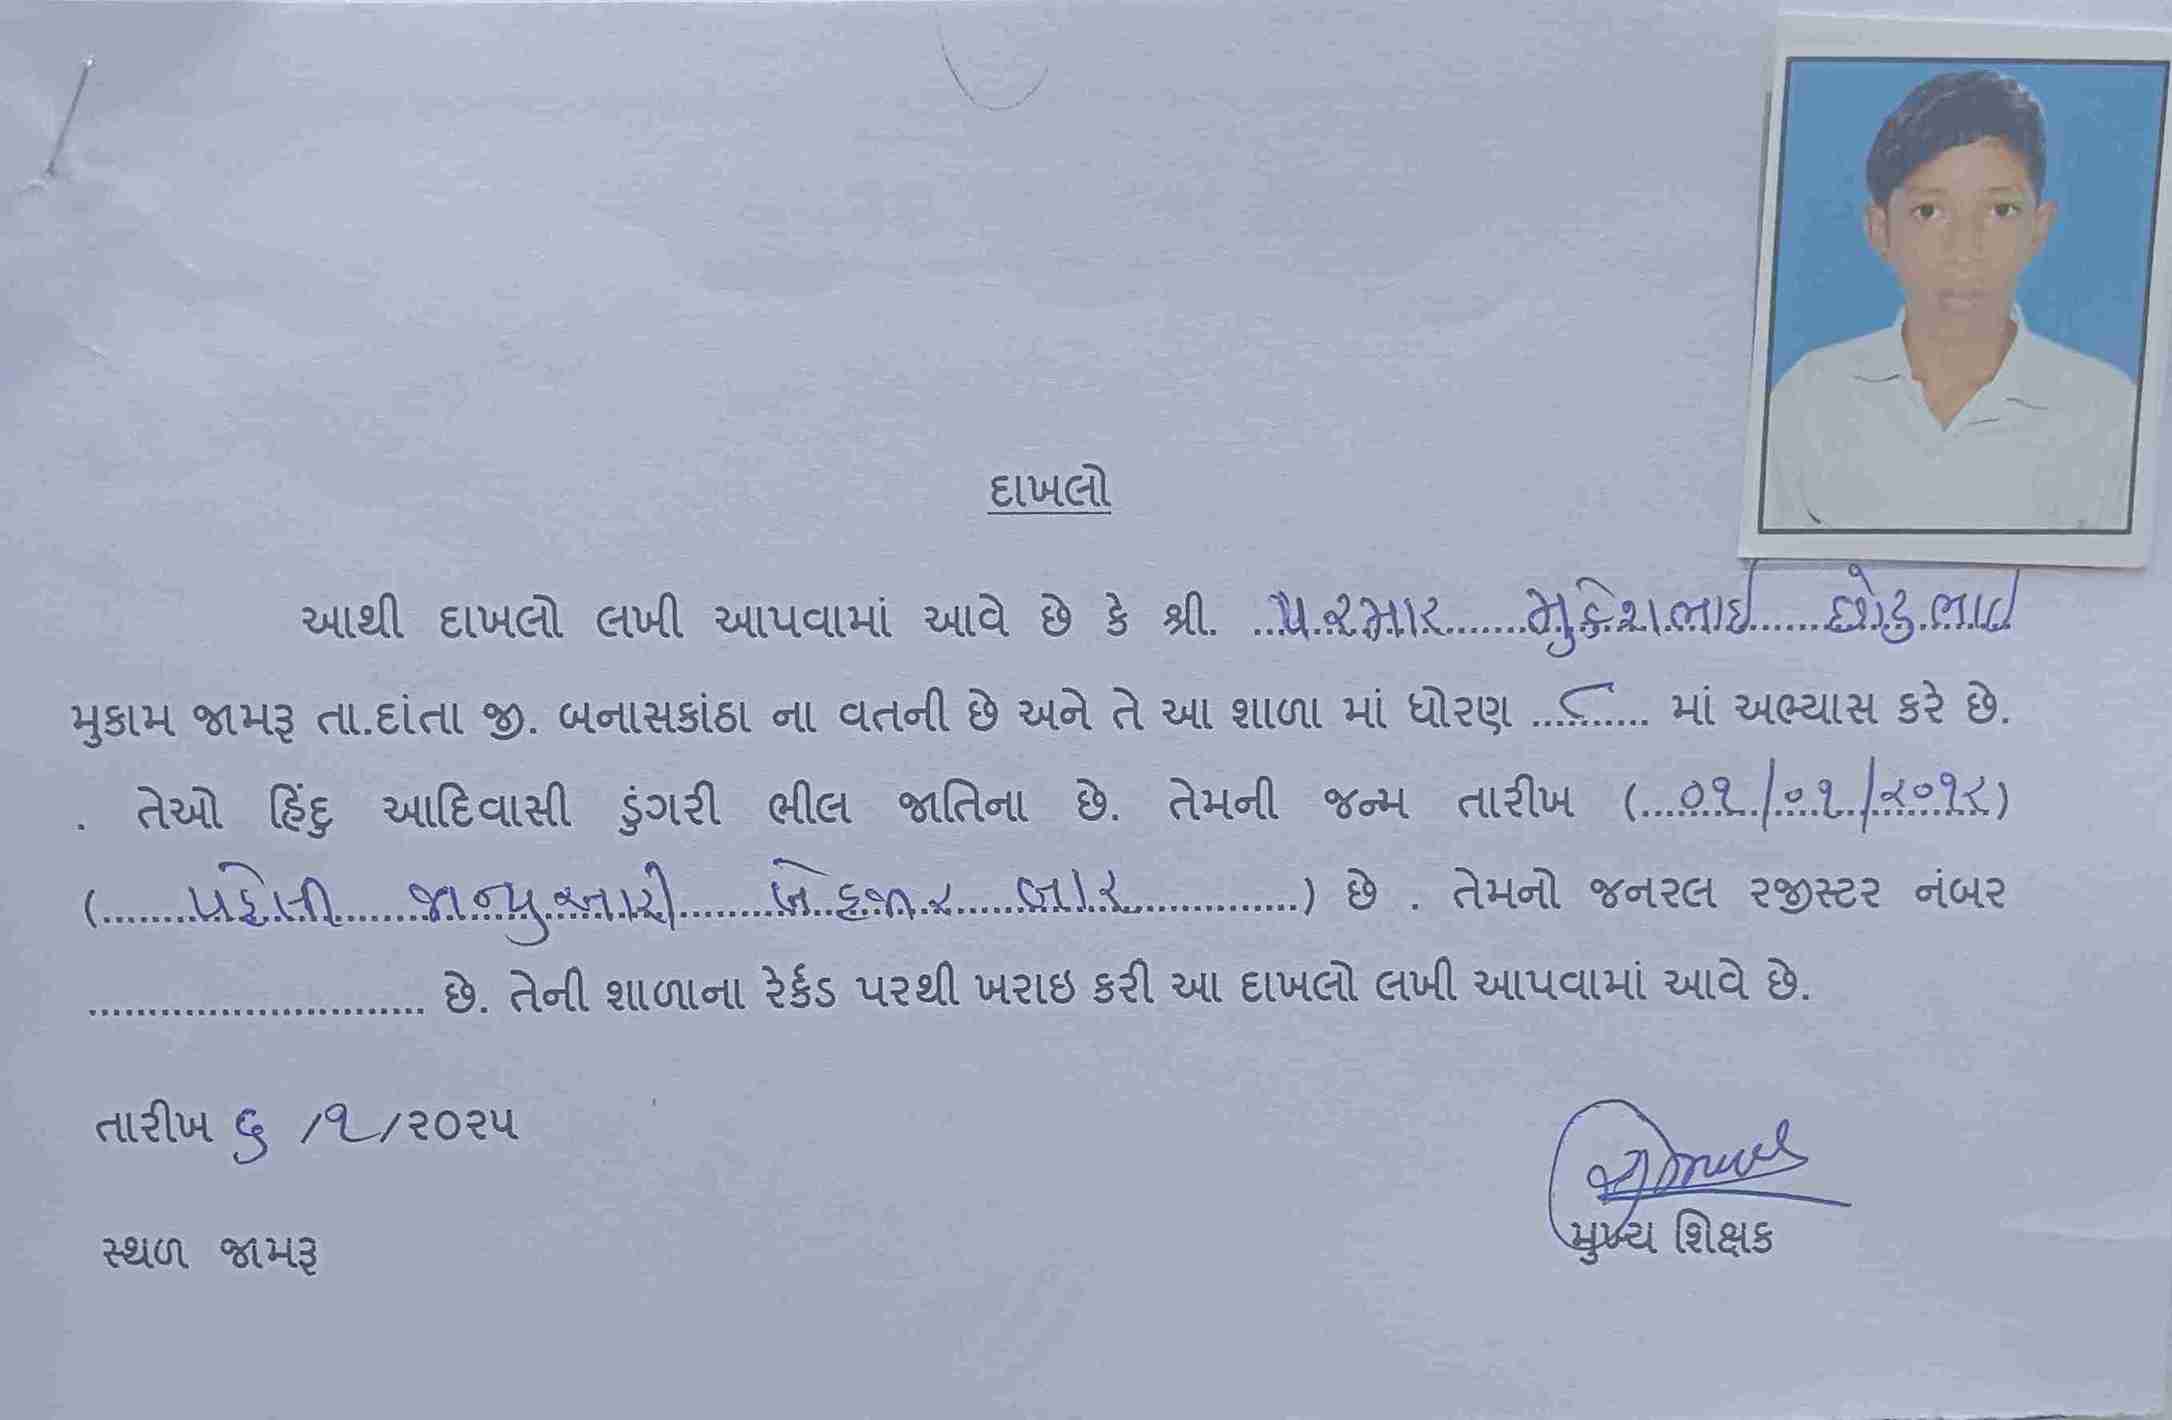 દાખલો
આથી દાખલો લખી આપવામાં આવે છે કે શ્રી. ...પરમાર.......મુકેશભાઇ......છોટુભાઇ
મુકામ જામરૂ તા.દાંતા જી. બનાસકાંઠા ના વતની છે અને તે આ શાળા માં ધોરણ ....૮..... માં અભ્યાસ કરે છે.
. તેઓ હિંદુ આદિવાસી ડુંગરી ભીલ જાતિના છે. તેમની જન્મ તારીખ (....૦૧/૦૧/૨૦૧૨)
(.......પહેલી.......જાન્યુઆરી.........બેહજાર.....બાર..............) છે . તેમનો જનરલ રજીસ્ટર નંબર
............................ છે. તેની શાળાના રેર્કડ પરથી ખરાઇ કરી આ દાખલો લખી આપવામાં આવે છે.
તારીખ ૬ /૧/૨૦૨૫
મુખ્ય શિક્ષક
સ્થળ જામરૂ